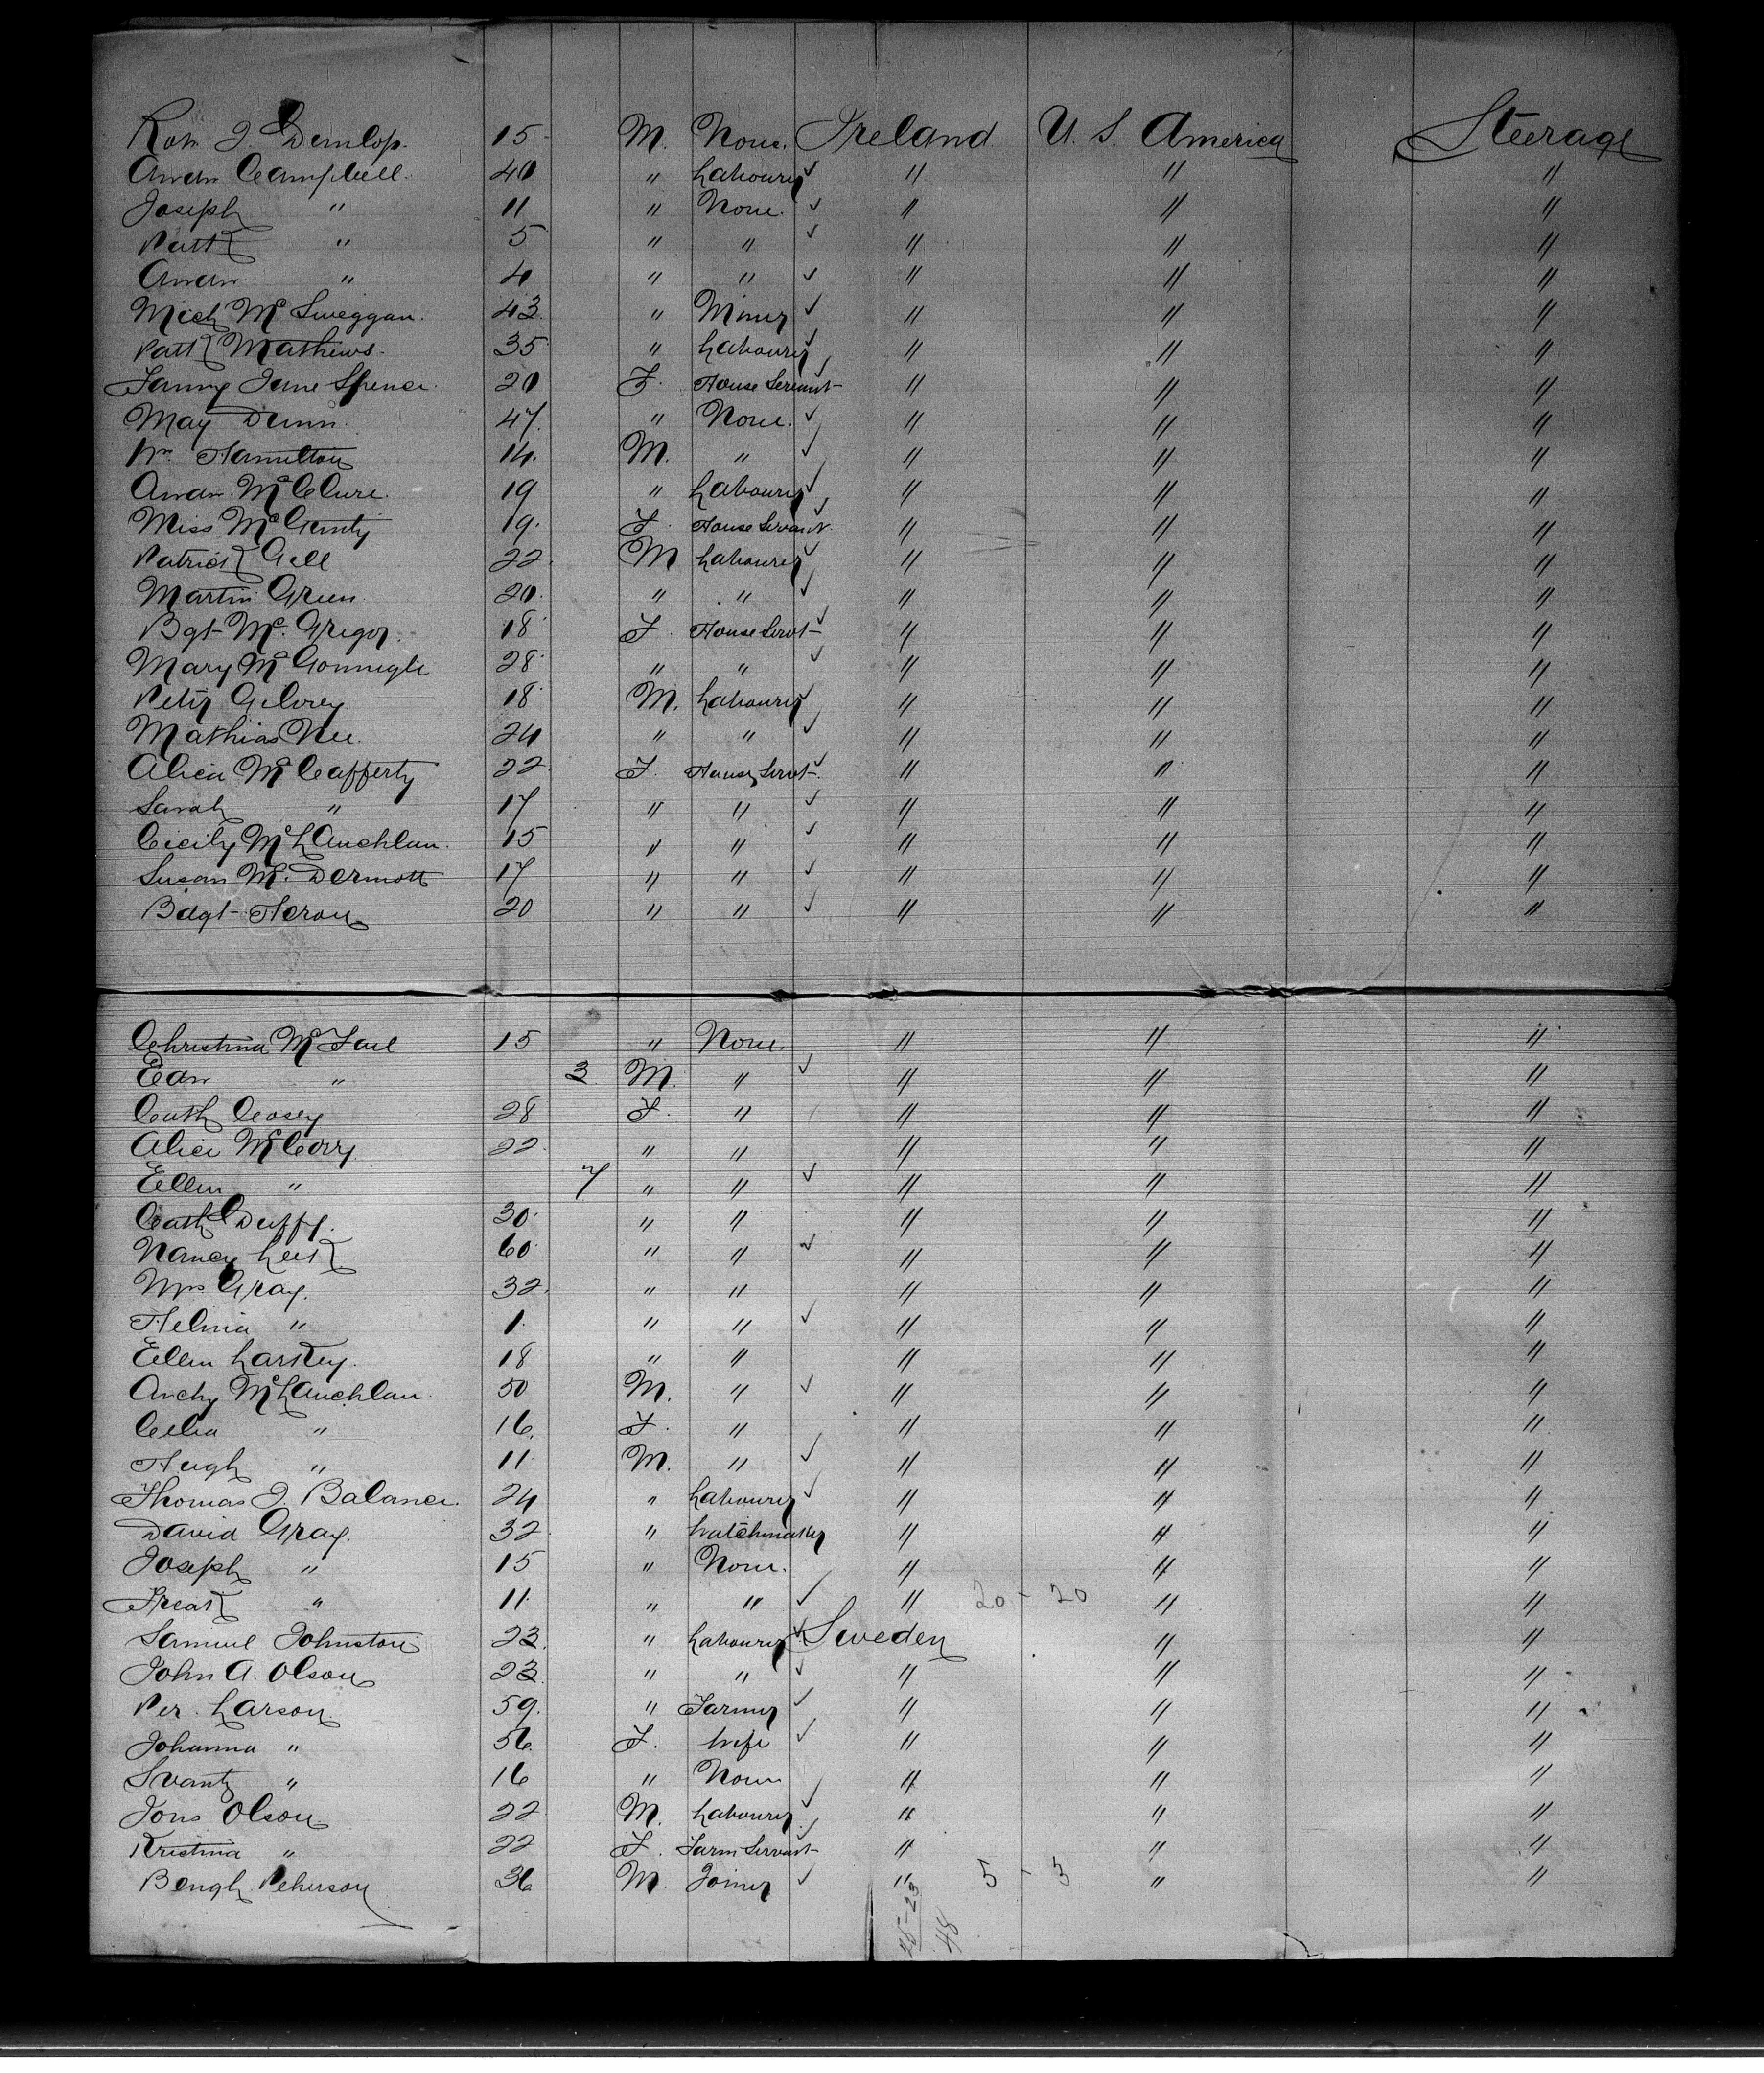 Robt J. Dunlop. 15 M. None. Ireland U. S. America Steerage
Andw Campbell. 40 " Labourer " " "
Joseph " 11 " None. " " "
Patk " 5 " " " " "
Andw " 4 " " " " "
Mich Mc Sweggan. 43 " Miner " " "
Patk Mathews. 35 " Labourer " " "
Fanny Jane Spence. 20 F. House Servant " " "
May Dunn. 47. " None. " " "
Wm Hamilton 14. M. " " " "
Andw McClure. 19 " Labourer " " "
Miss McGinty 19. F. House Servant. " " "
Patrick Gill 22. M Labourer " " "
Martin Green. 20. " " " " "
Bgt Mc. Gregor. 18 F. House Servt " " "
Mary McGonnigle 28 " " " " "
Peter Gilvrey 18 M. Labourer " " "
Mathias Nee. 24 " " " " "
Alicia McCafferty 22 F. House Servt. " " "
Sarah " 17 " " " " "
Cicily McLauchlan. 15 " " " " "
Susan Mc. Dermott 17 " " " " "
Bdgt Heron 20 " " " " "
Christina McFaul 15 " None. " " "
Edw " 3 M. " " " "
Cath Casey 28 F. " " " "
Alice McCorry 22 " " " " "
Ellen " 7 " " " " "
Cath Duffy. 30 " " " " "
Nancy 60 " " " " "
Mrs Gray. 32. " " " " "
Helina " 1 " " " " "
Ellen Larkey. 18 " " " " "
Archy McLauchlan. 50 M. " " " "
Celia " 16. F. " " " "
Hugh " 11 M. " " " "
Thomas J. Balance. 24 " Labourer " " "
David Gray. 32 " Watchmaker " " "
Joseph " 15 " None. " " "
Fredk " 11 " " " 20 - 20 " "
Samuel Johnston 23. " Labourer Sweden " "
John A. Olson 23. " " " " "
Per. Larson 59. " Farmer " " "
Johanna " 56. F. Wife " " "
Svante " 16 " None " " "
Jons Olson 22 M. Labourer " " "
Kristina " 22 F. Farm Servant " " "
Bengt Peherson 36 M. Joiner " 5 - 3 " "
25-23
48